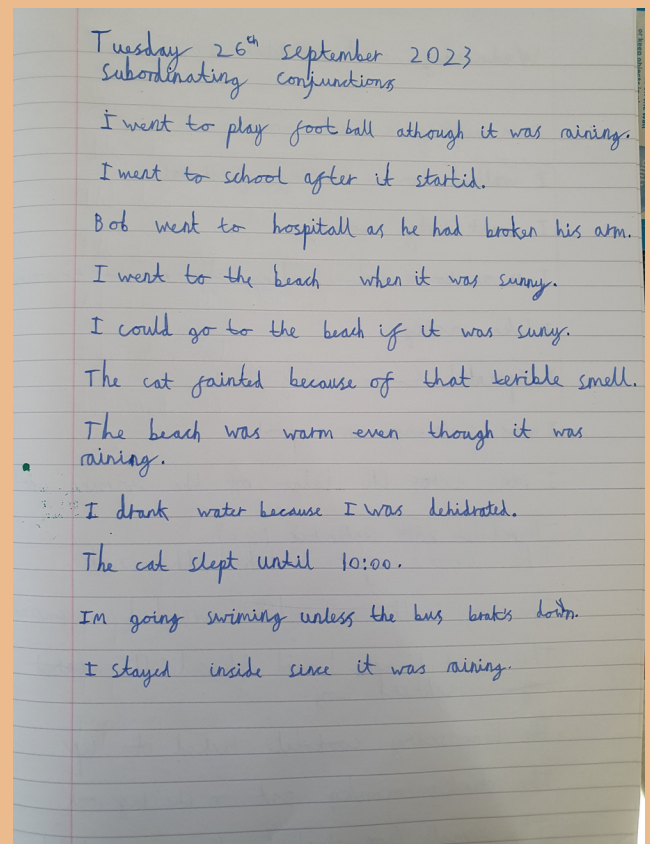 Tuesday 26th september 2023
subordinating conjunctions
I went to play foot ball athough it was raining.
I went to school after it startid.
Bob went to hospitall as he had broken his arm.
I went to the beach when it was sunny.
I could go to the beach if it was suny.
The cat fainted because of that terible smell.
The beach was warm even though it was
raining.
I drank water because I was dehidrated.
The cat slept until 10:00.
Im going swiming unless the bus braks down.
I stayed inside since it was raining.